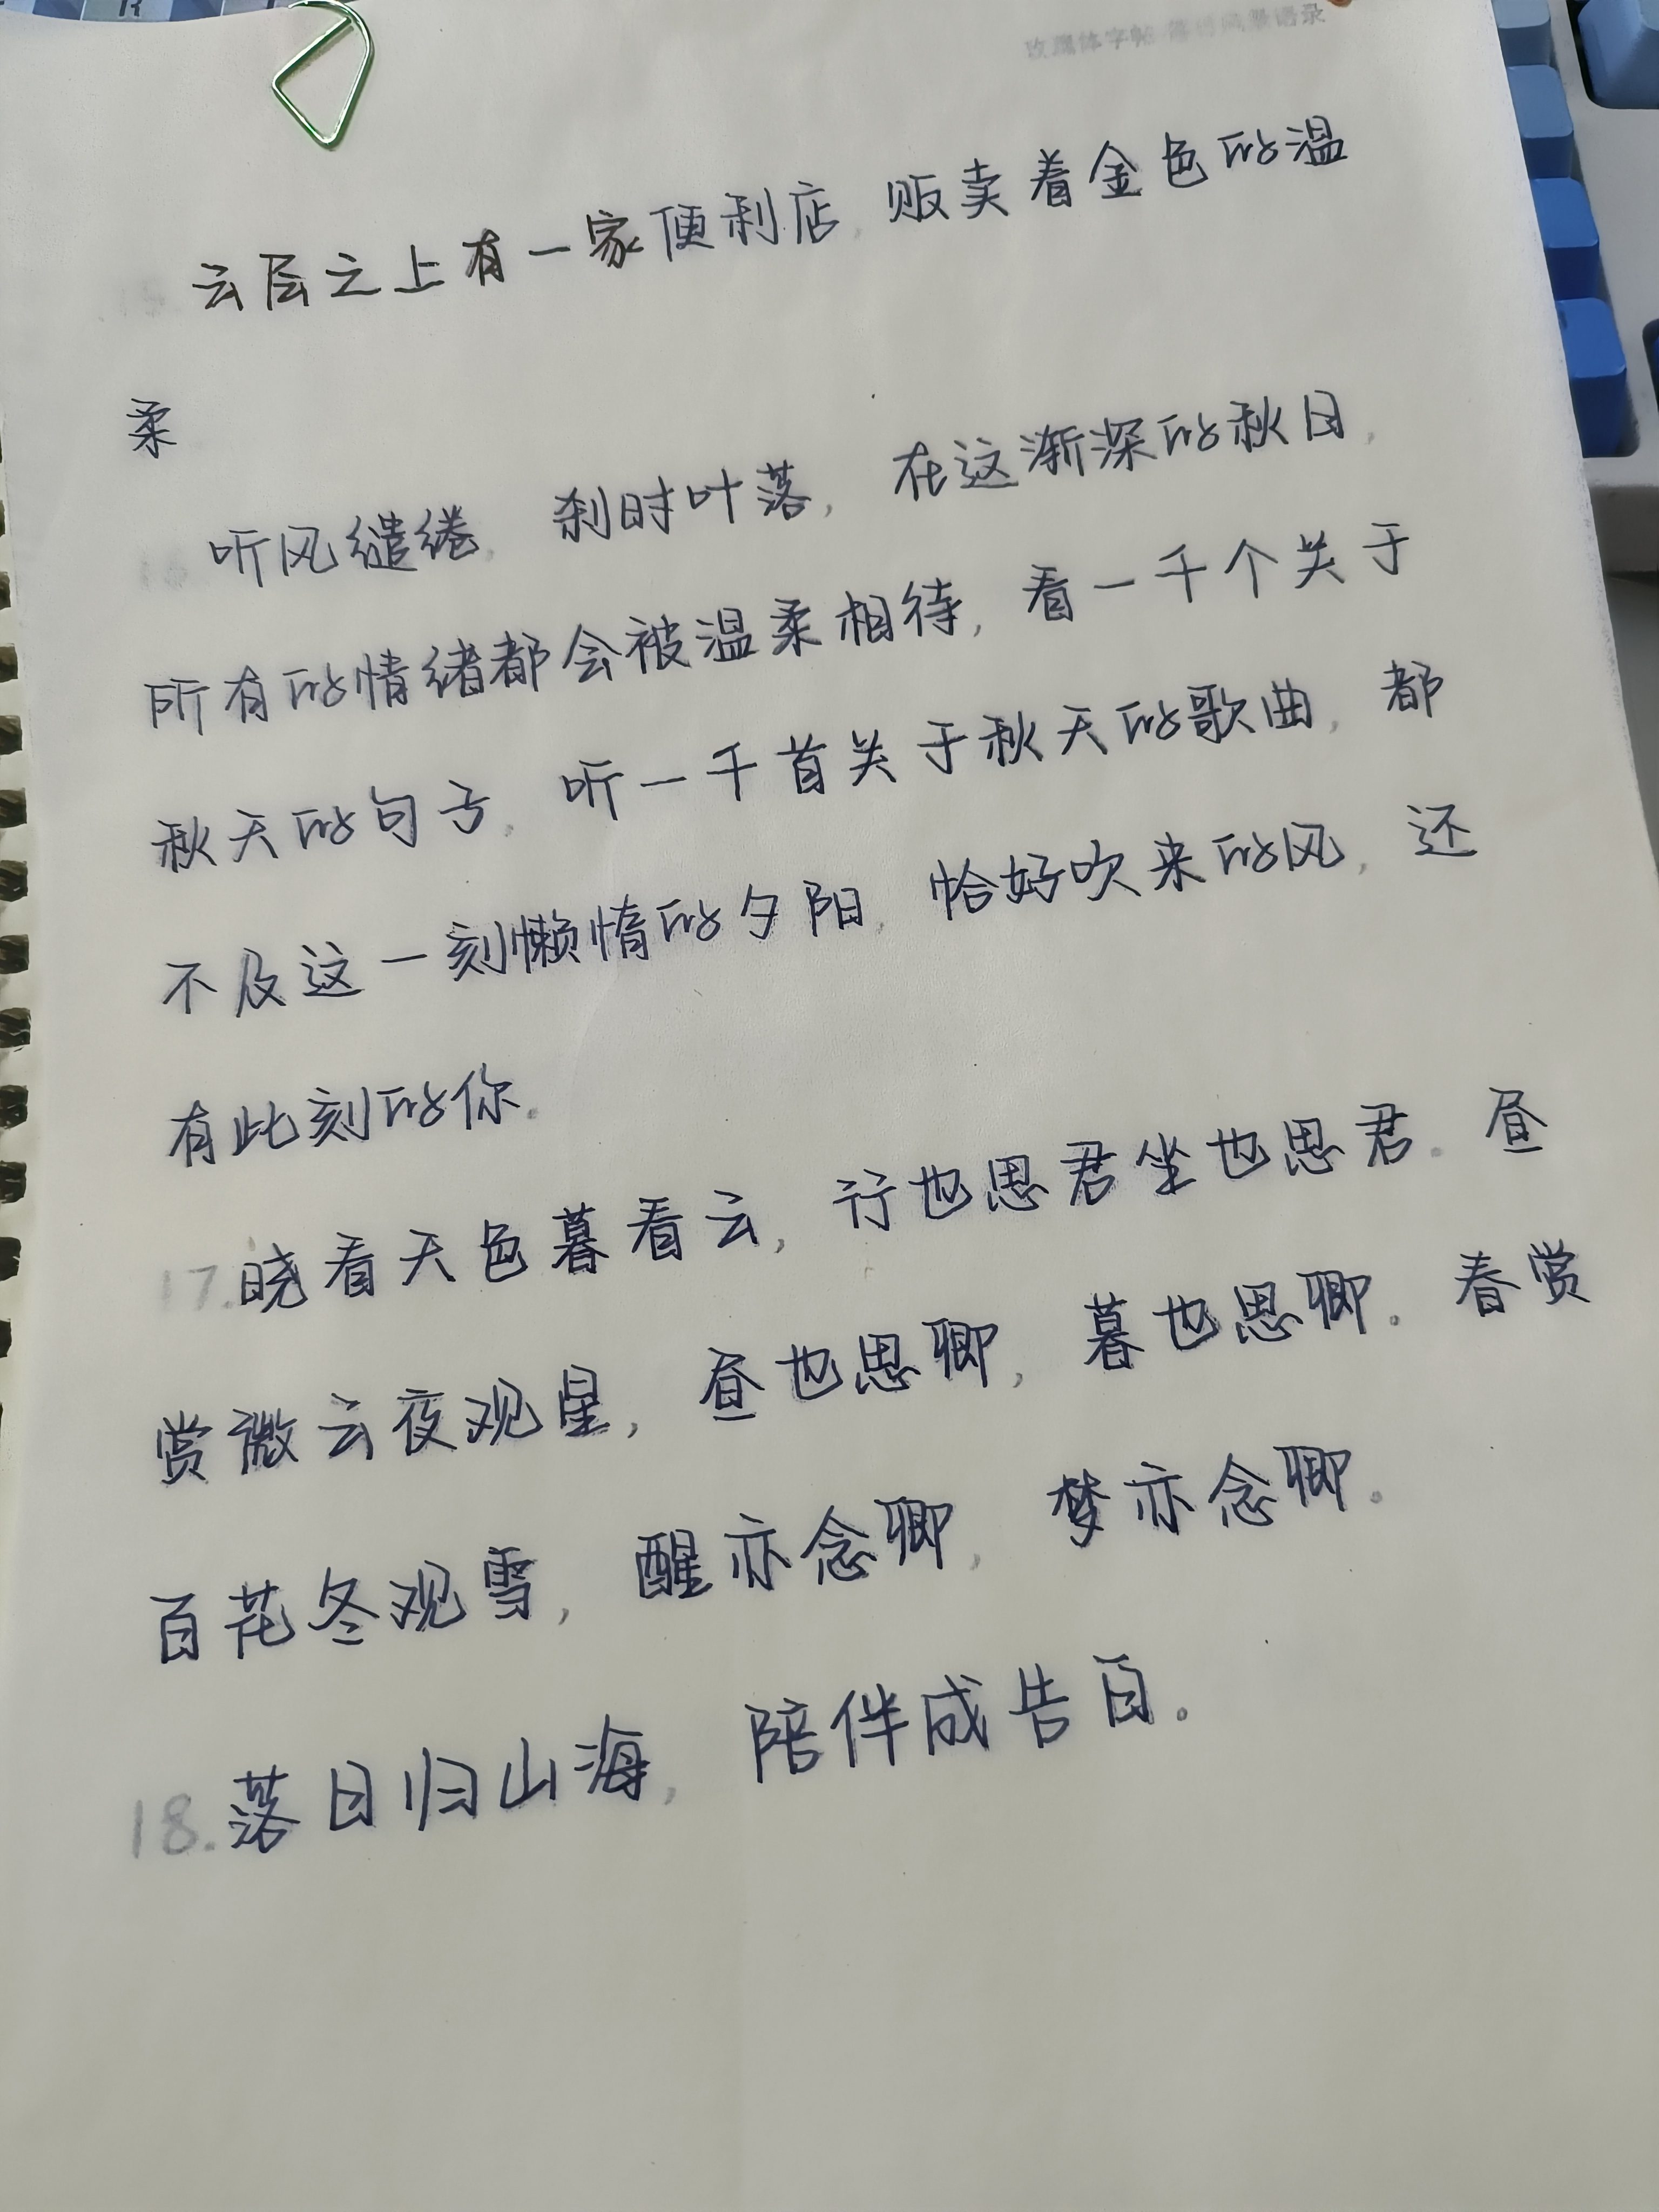 云层之上有一家便利店，贩卖着金色的温
柔
听风缱绻，刹时叶落，在这渐深的秋日，
所有的情绪都会被温柔相待，看一千个关于
秋天的句子，听一千首关于秋天的歌曲，都
不及这一刻懒惰的夕阳，恰好吹来的风，还
有此刻的你。
17.晓看天色暮看云，行也思君坐也思君。昼
赏微云夜观星，昼也思卿，暮也思卿。春赏
百花冬观雪，醒亦念卿，梦亦念卿。
18.落日归山海，陪伴成告白。